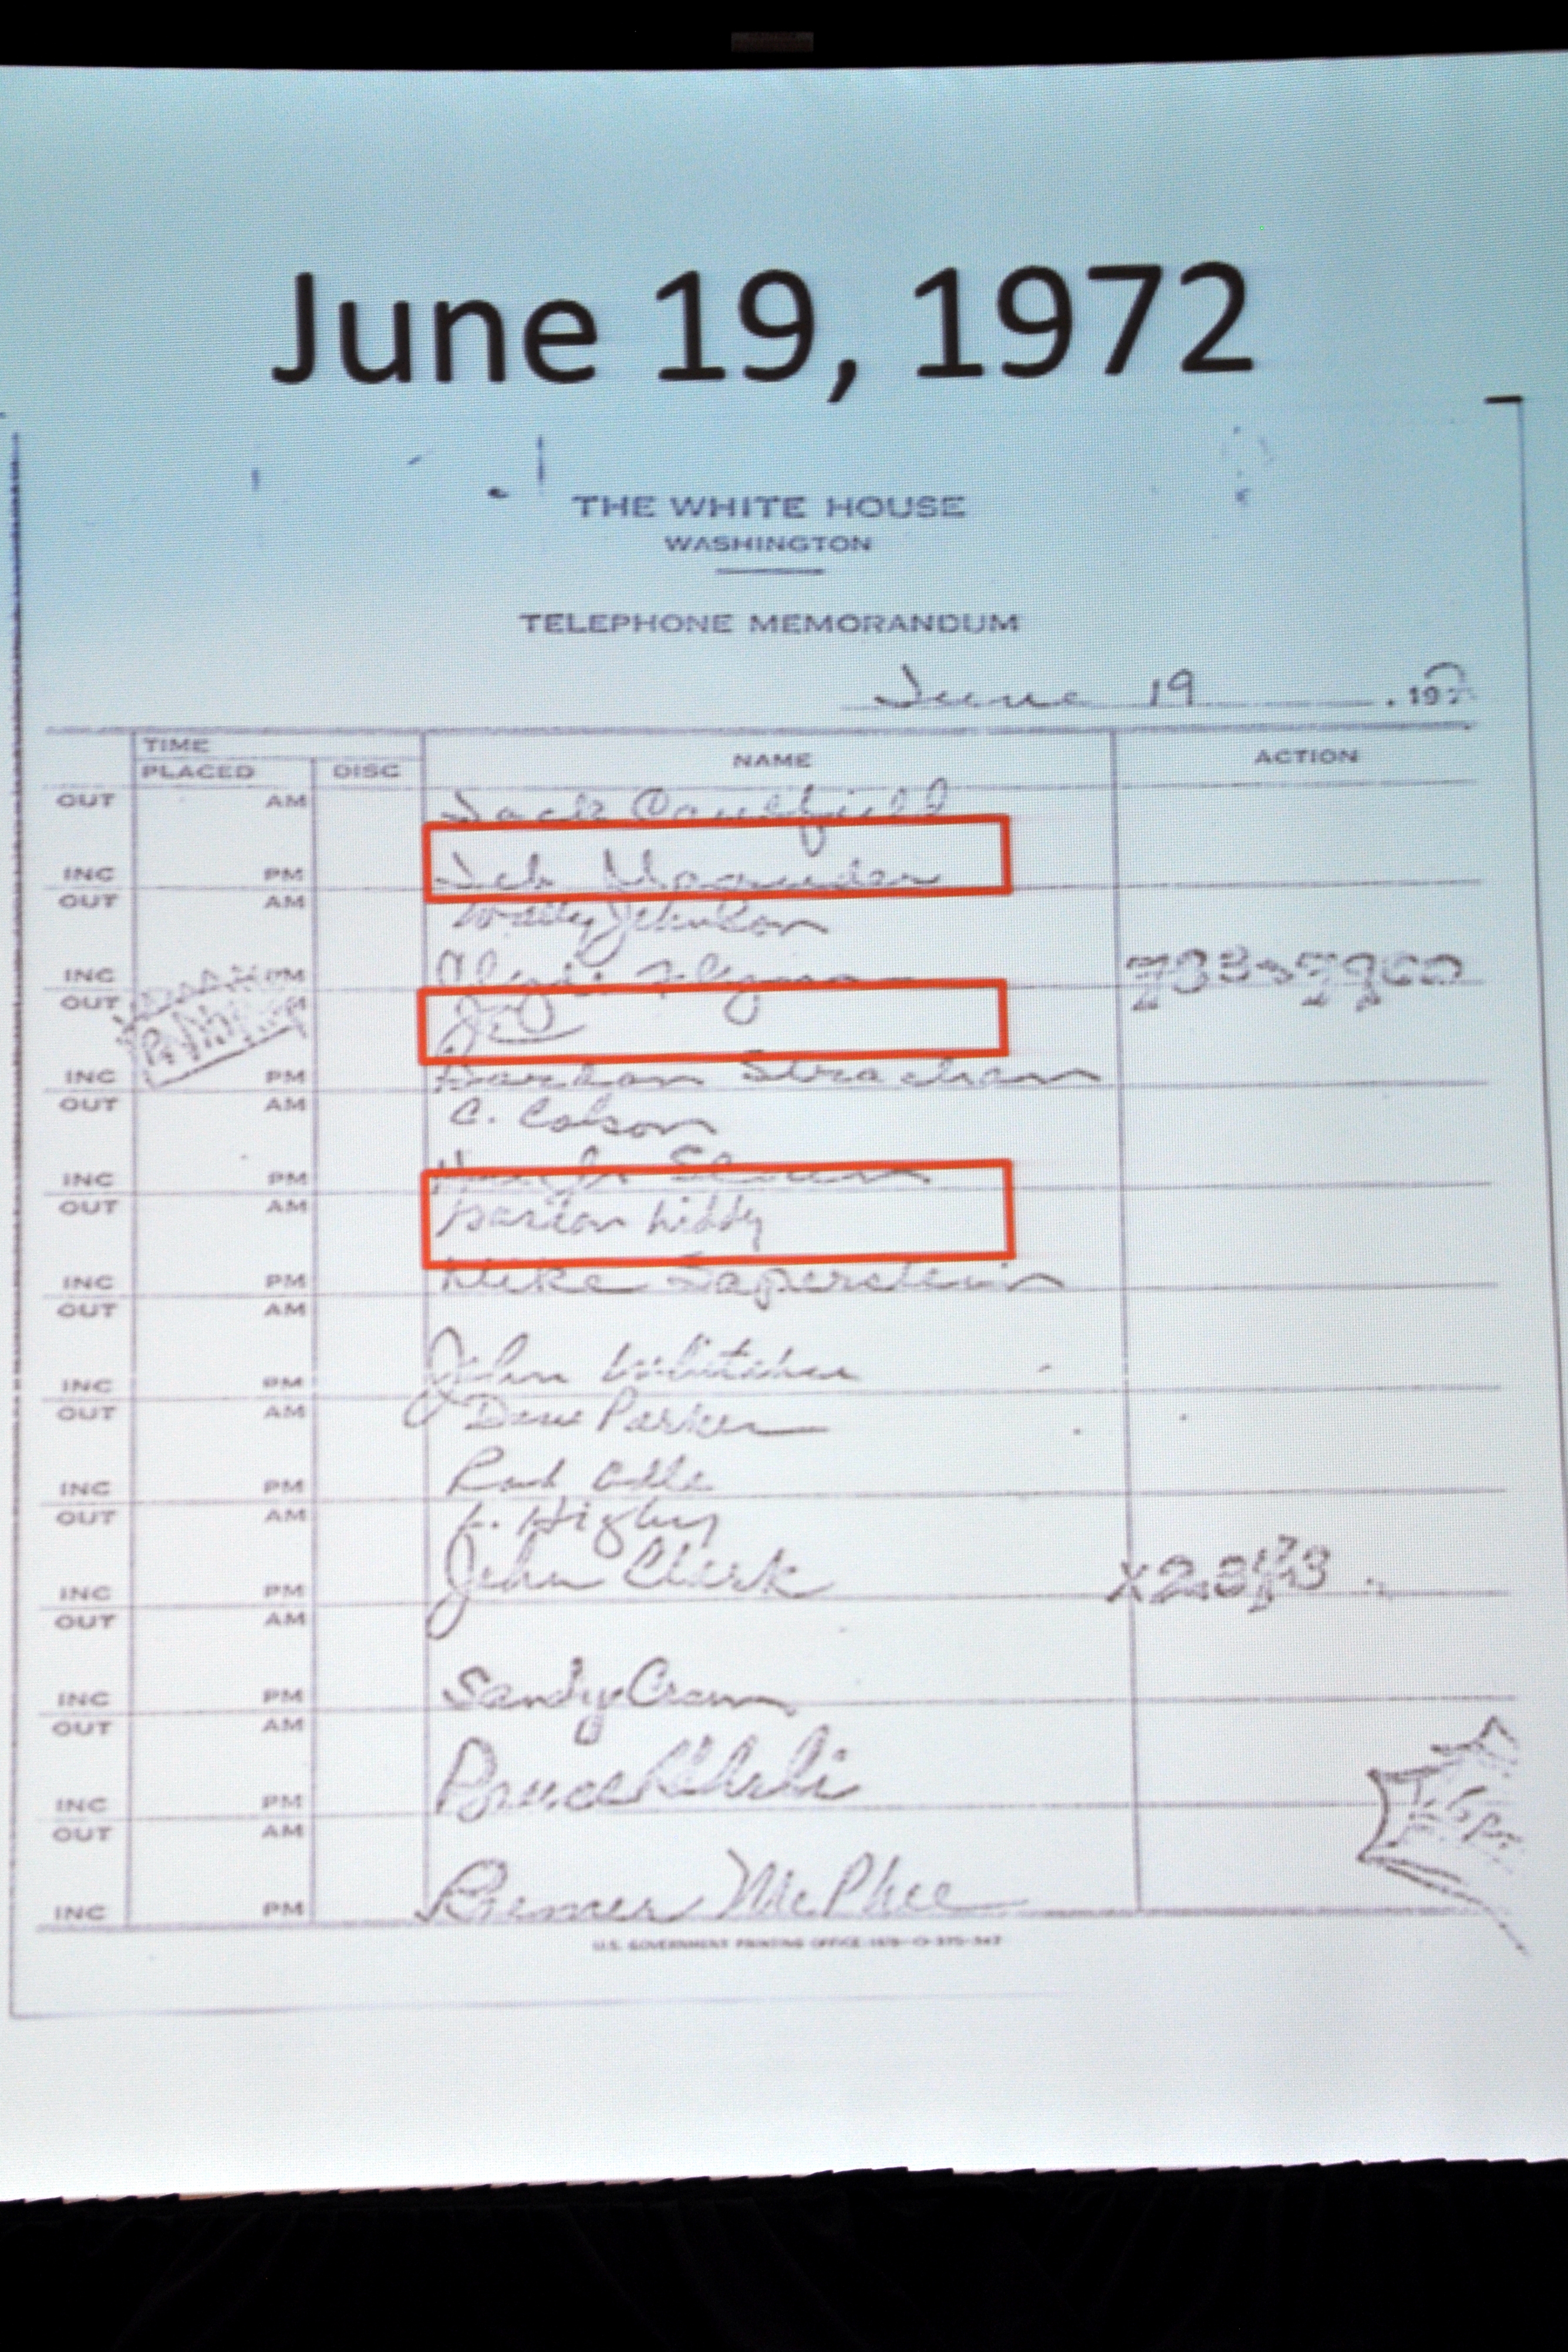 June 19, 1972
THE WHITE HOUSE
WASHINGTON
TELEPHONE MEMORANDUM
June 19 , 197
TIME
PLACED DISC NAME ACTION
OUT AM Jack Caulfield
INC PM Jeb Magruder
OUT AM Wally Johnson
INC PM
OUT JE
INC PM Gordon Strachan
OUT AM C. Colson
INC PM Hugh Sloan
OUT AM Gordon Liddy
INC PM Mike Saperstein
OUT AM
INC PM John Whitaker
OUT AM Doug Parker
INC PM Rob Odle
OUT AM L. Higby
INC PM John Clark
OUT AM
INC PM Sandy Crown
OUT AM
INC PM Bruce
OUT AM
INC PM McPhee
U.S. GOVERNMENT PRINTING OFFICE